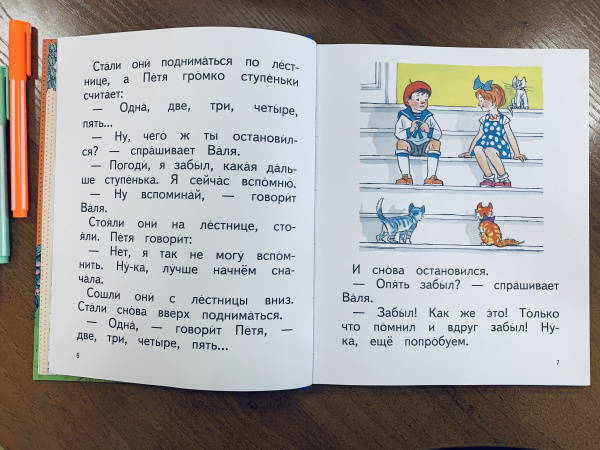 Ста́ли они́ поднима́ться по ле́ст-
нице, а Пе́тя гро́мко ступе́ньки
счита́ет:
— Одна́, две, три, четы́ре,
пять...
— Ну, чего́ ж ты останови́л-
ся? — спра́шивает Ва́ля.
— Погоди́, я забы́л, кака́я да́ль-
ше ступе́нька. Я сейча́с вспо́мню.
— Ну вспомина́й, — говори́т
Ва́ля.
Стоя́ли они́ на ле́стнице, сто-
я́ли. Пе́тя говори́т:
— Нет, я так не могу́ вспо́м-
нить. Ну́-ка, лу́чше начнём сна-
ча́ла.
Сошли́ они́ с ле́стницы вниз.
Ста́ли сно́ва вверх поднима́ться.
— Одна́, — говори́т Пе́тя, —
две, три, четы́ре, пять...
6
И сно́ва останови́лся.
— Опя́ть забы́л? — спра́шивает
Ва́ля.
— Забы́л! Как же э́то! То́лько
что по́мнил и вдруг забы́л! Ну́-
ка, ещё попро́буем.
7